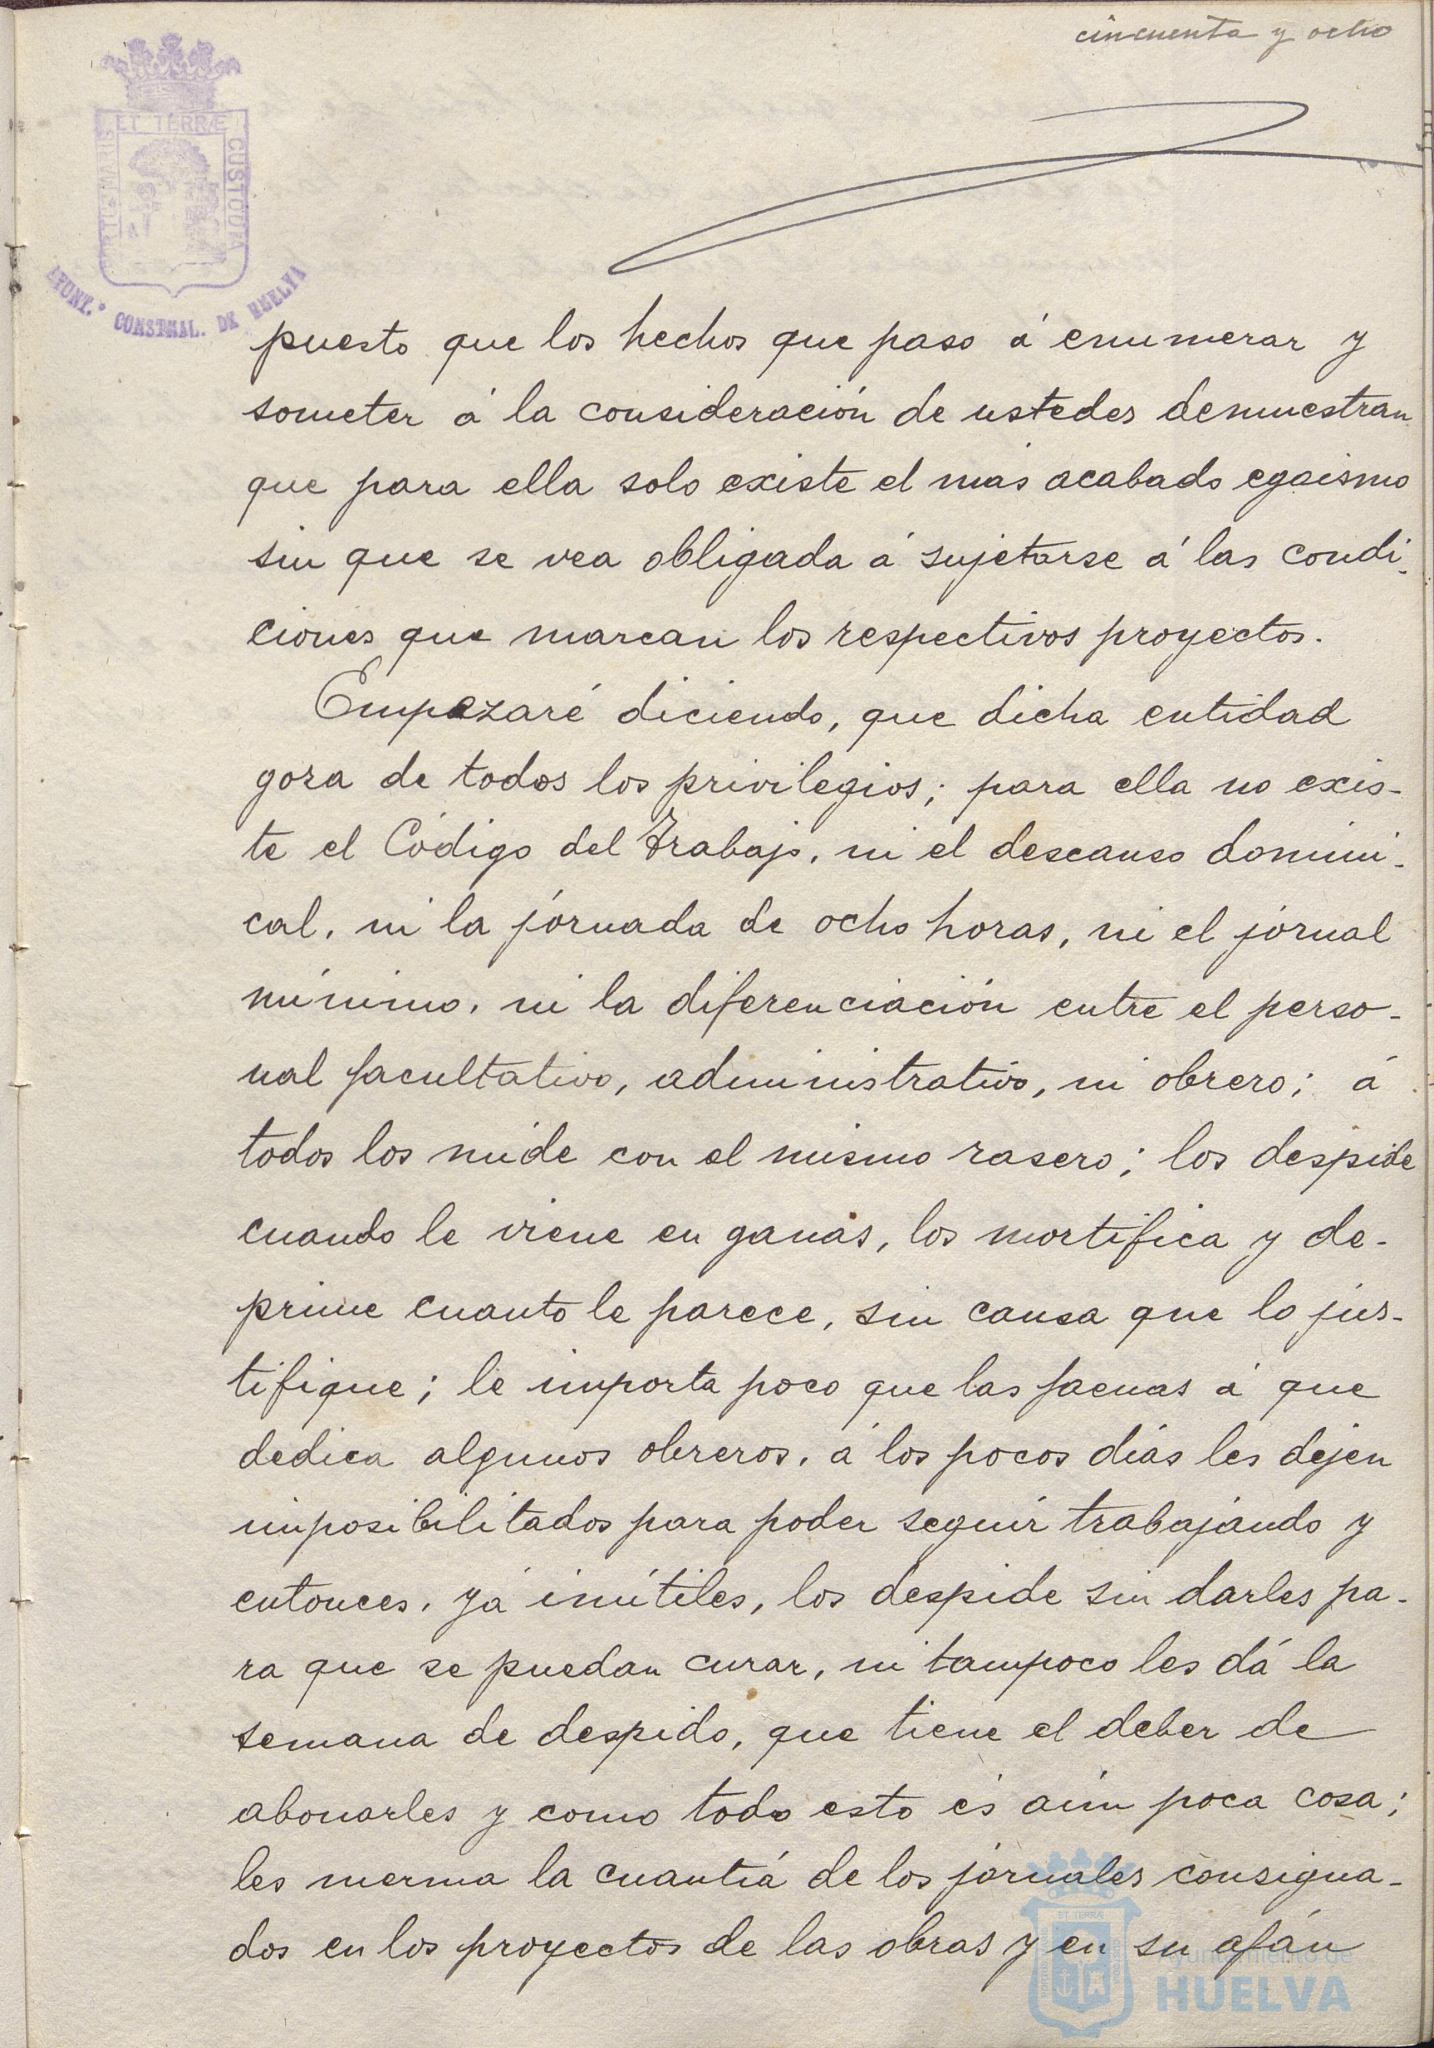 cincuenta y ocho
ET TERRÆ
CUSTODIA
PORTUS MARIS
AYUNT.º CONSTNAL. DE HUELVA
puesto que los hechos que paso á enumerar y
someter á la consideración de ustedes demuestran
que para ella solo existe el más acabado egoismo
sin que se vea obligada á sujetarse á las condi-
ciones que marcan los respectivos proyectos.
Empezaré diciendo, que dicha entidad
goza de todos los privilegios; para ella no exis-
te el Código del Trabajo, ni el descanso domini-
cal, ni la jórnada de ocho horas, ni el jórnal
mínimo, ni la diferenciación entre el perso-
nal facultativo, administrativo, ni obrero; á
todos los mide con el mismo rasero; los despide
cuando le viene en ganas, los mortifica y de-
prime cuanto le parece, sin causa que lo jus-
tifique; le importa poco que las faenas á que
dedica algunos obreros, á los pocos días les dejen
imposibilitados para poder seguir trabajando y
entonces, yá inútiles, los despide sin darles pa-
ra que se puedan curar, ni tampoco les dá la
semana de despido, que tiene el deber de
abonarles y como todo esto és aún poca cosa;
les merma la cuantiá de los jórnales consigna-
dos en los proyectos de las obras y en su afán
Ayuntamiento de
HUELVA